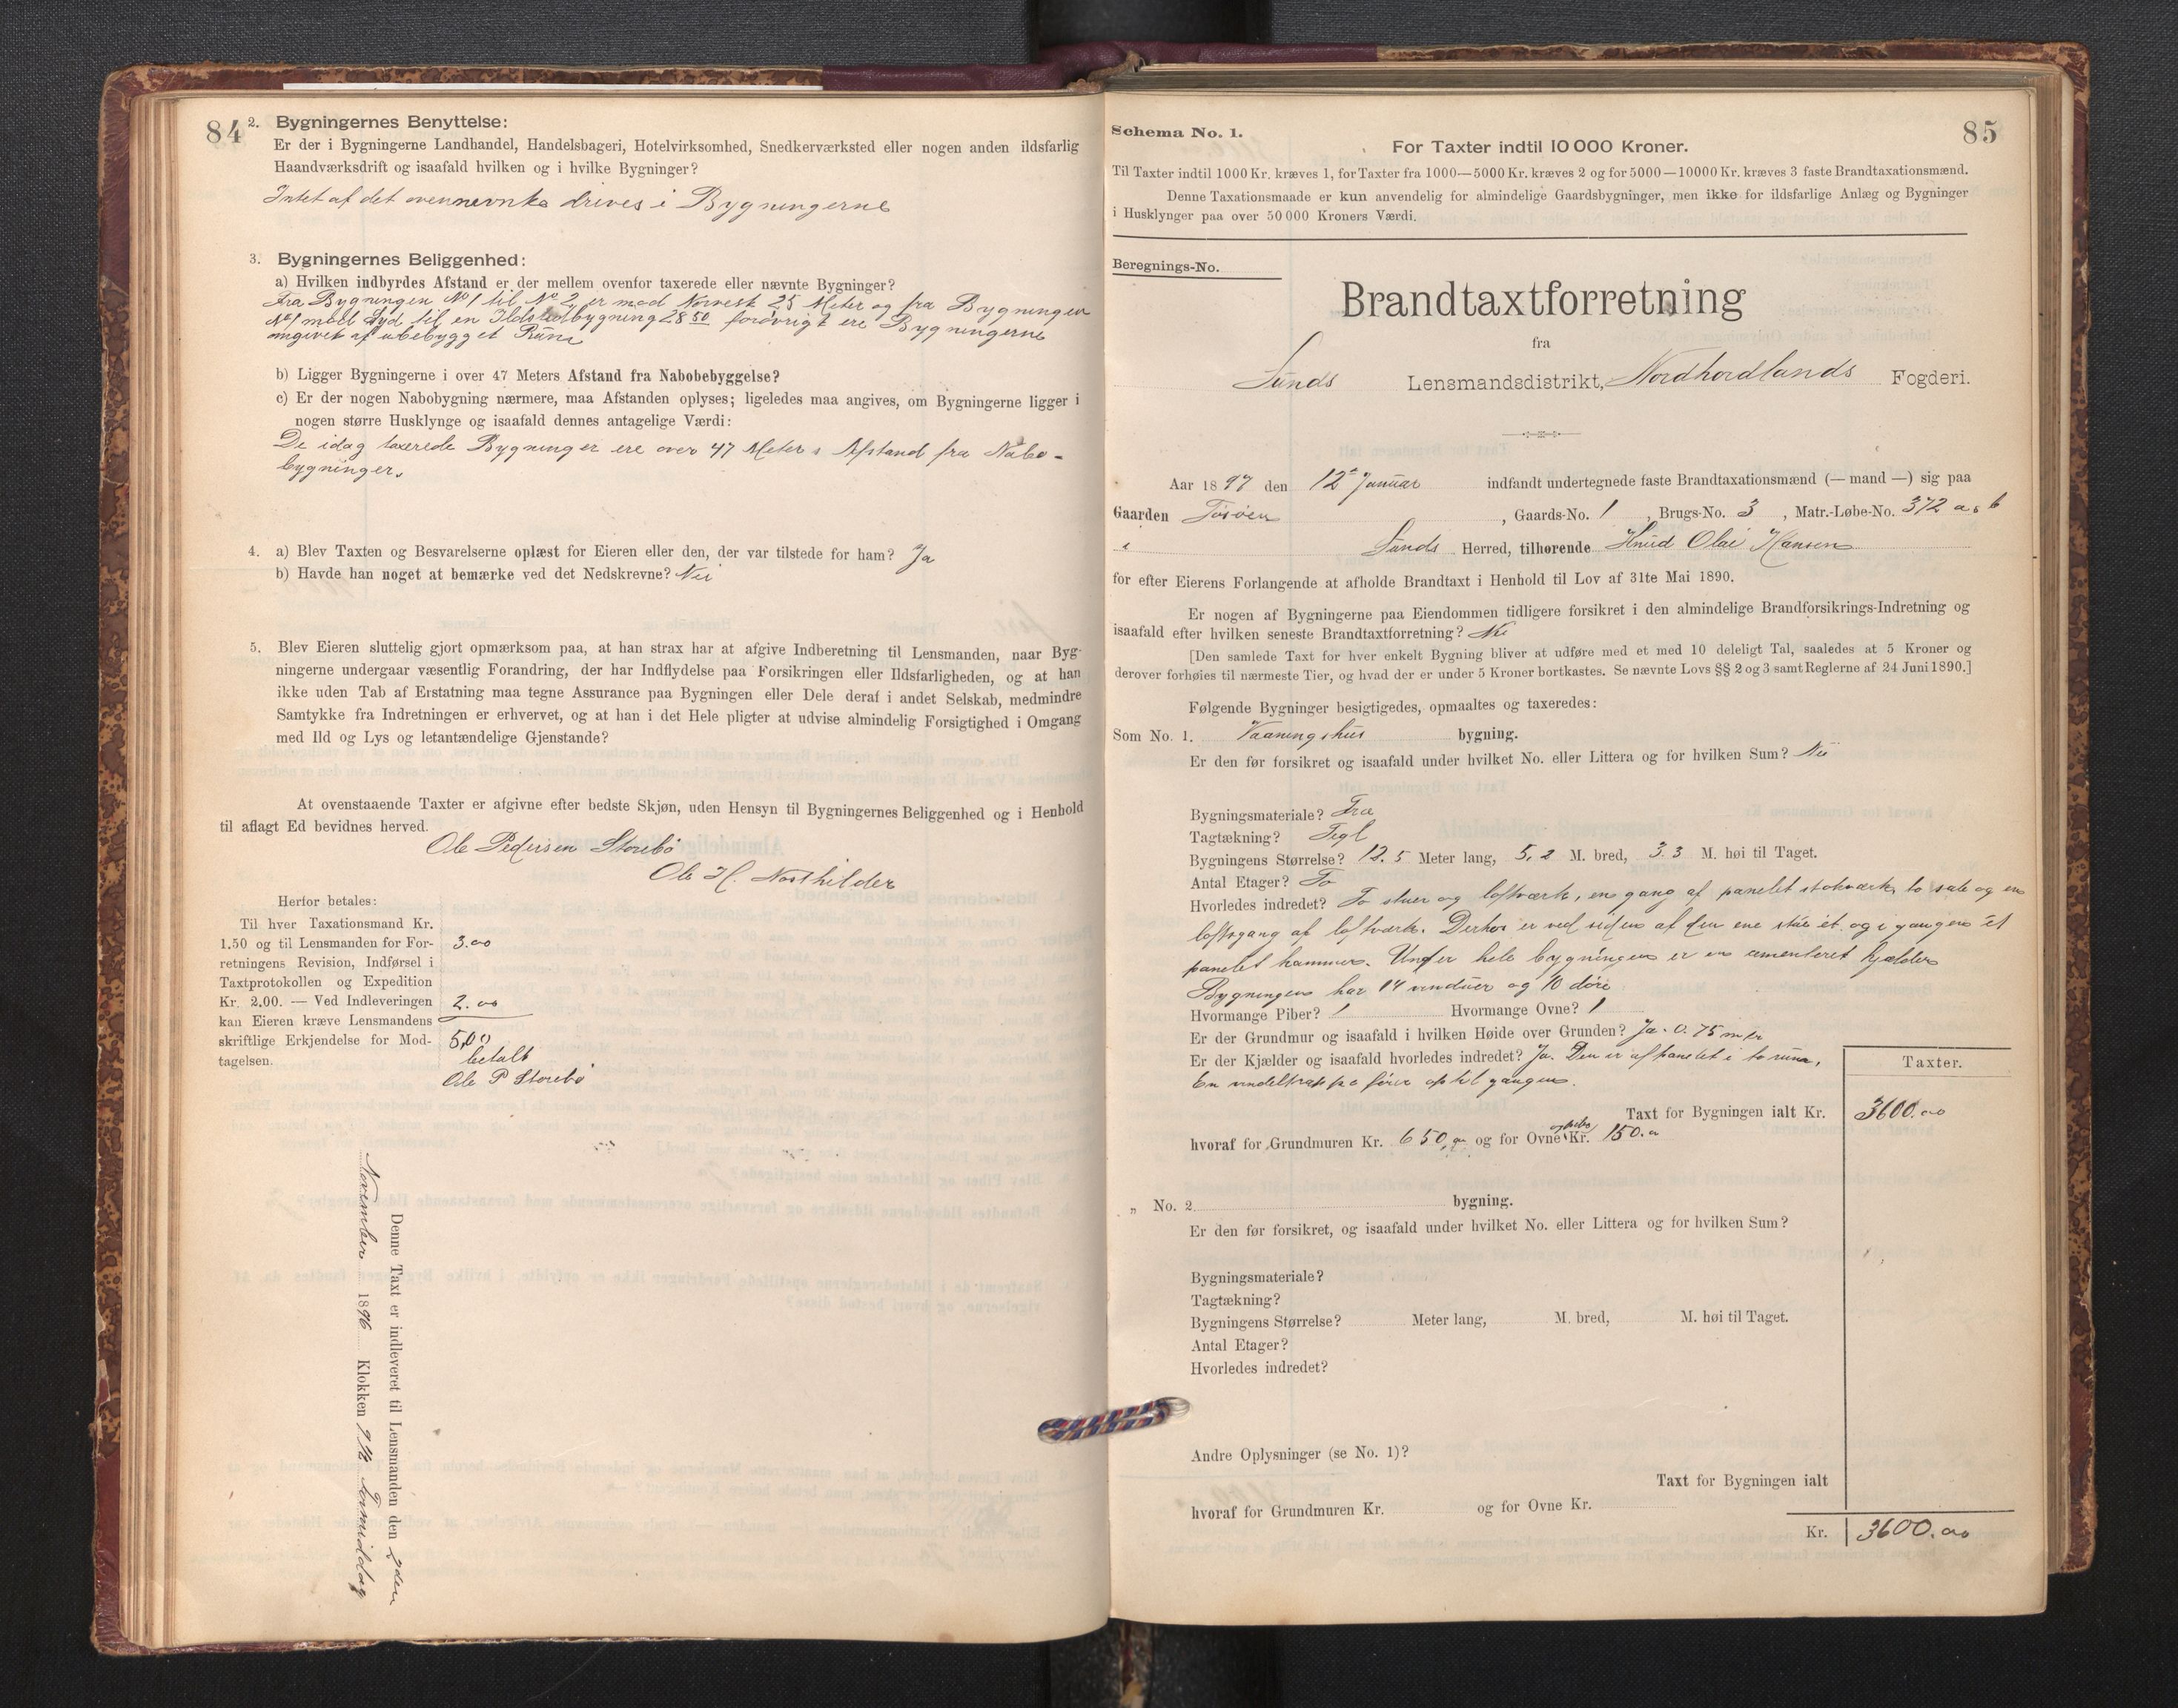 84
2. Bygningernes Benyttelse:
Er der i Bygningerne Landhandel, Handelsbageri, Hotelvirksomhed, Snedkerværksted eller nogen anden ildsfarlig
Haandværksdrift og isaafald hvilken og i hvilke Bygninger?
Intet af det ovennevnte drives i Bygningerne
3. Bygningernes Beliggenhed:
a) Hvilken indbyrdes Afstand er der mellem ovenfor taxerede eller nævnte Bygninger?
Fra Bygningen No 1 til No 2 er mod Norvest 25 Meter og fra Bygningen
No 1 mod Syd til en Ildstedbygning 28 50 forøvrigt ere Bygningerne
omgivet af ubebygget Rum
b) Ligger Bygningerne i over 47 Meters Afstand fra Nabobebyggelse?
c) Er der nogen Nabobygning nærmere, maa Afstanden oplyses; ligeledes maa angives, om Bygningerne ligger i
nogen større Husklynge og isaafald dennes antagelige Værdi:
De idag taxerede Bygninger ere over 47 Meters Afstand fra Nabo-
bygninger.
4. a) Blev Taxten og Besvarelserne oplæst for Eieren eller den, der var tilstede for ham? Ja
b) Havde han noget at bemærke ved det Nedskrevne? Nei
5. Blev Eieren sluttelig gjort opmærksom paa, at han strax har at afgive Indberetning til Lensmanden, naar Byg-
ningerne undergaar væsentlig Forandring, der har Indflydelse paa Forsikringen eller Ildsfarligheden, og at han
ikke uden Tab af Erstatning maa tegne Assurance paa Bygningen eller Dele deraf i andet Selskab, medmindre
Samtykke fra Indretningen er erhvervet, og at han i det Hele pligter at udvise almindelig Forsigtighed i Omgang
med Ild og Lys og letantændelige Gjenstande?
At ovenstaaende Taxter er afgivne efter bedste Skjøn, uden Hensyn til Bygningernes Beliggenhed og i Henhold
til aflagt Ed bevidnes herved.
Ole Pedersen Storebø
Ole H.
Herfor betales:
Til hver Taxationsmand Kr.
1.50 og til Lensmanden for For- 3.00
retningens Revision, Indførsel i
Taxtprotokollen og Expedition
Kr. 2.00. — Ved Indleveringen 2.00
kan Eieren kræve Lensmandens
skriftlige Erkjendelse for Mod- 5,00
tagelsen. betalt
Ole P Storebø
Denne Taxt er indleveret til Lensmanden den 2den
November 1896 Klokken Formiddag
85
Schema No. 1.
For Taxter indtil 10 000 Kroner.
Til Taxter indtil 1000 Kr. kræves 1, for Taxter fra 1000—5000 Kr. kræves 2 og for 5000—10000 Kr. kræves 3 faste Brandtaxationsmænd.
Denne Taxationsmaade er kun anvendelig for almindelige Gaardsbygninger, men ikke for ildsfarlige Anlæg og Bygninger
i Husklynger paa over 50 000 Kroners Værdi.
Beregnings-No.
Brandtaxtforretning
fra
Sunds Lensmandsdistrikt, Nordhordlands Fogderi.
Aar 1897 den 12te Januar indfandt undertegnede faste Brandtaxationsmænd (— mand —) sig paa
Gaarden Tøsøen, Gaards-No. 1, Brugs-No. 3, Matr.-Løbe-No. 372 a, b
i Sunds Herred, tilhørende Knud Olai Hansen
for efter Eierens Forlangende at afholde Brandtaxt i Henhold til Lov af 31te Mai 1890.
Er nogen af Bygningerne paa Eiendommen tidligere forsikret i den almindelige Brandforsikrings-Indretning og
isaafald efter hvilken seneste Brandtaxtforretning? Nei
[Den samlede Taxt for hver enkelt Bygning bliver at udføre med et med 10 deleligt Tal, saaledes at 5 Kroner og
derover forhøies til nærmeste Tier, og hvad der er under 5 Kroner bortkastes. Se nævnte Lovs §§ 2 og 3 samt Reglerne af 24 Juni 1890.]
Følgende Bygninger besigtigedes, opmaaltes og taxeredes:
Som No. 1. Vaaningshus bygning.
Er den før forsikret og isaafald under hvilket No. eller Littera og for hvilken Sum? Nei
Bygningsmateriale? Træ
Tagtækning? Tegl
Bygningens Størrelse? 12.5 Meter lang, 5,2 M. bred, 3.3 M. høi til Taget.
Antal Etager? To
Hvorledes indredet? To stuer og loftværk, en gang af panelet stokværk, to sale og en
loftsgang af loftværk. Derhos er ved siden af den ene stue et og i gangen et
panelet kammer. Under hele bygningen er en cementeret kjælder
Bygningen har 14 vinduer og 10 døre
Hvormange Piber? 1 Hvormange Ovne? 1
Er der Grundmur og isaafald i hvilken Høide over Grunden? Ja. 0.75 mtr
Er der Kjælder og isaafald hvorledes indredet? Ja. Den er afpanelet i to rum,
En vindeltrappe fører op til gangen.
Taxter.
Taxt for Bygningen ialt Kr. 3600.00
hvoraf for Grundmuren Kr. 650,00 og for Ovne og piber Kr. 150.00
„ No. 2 bygning.
Er den før forsikret, og isaafald under hvilket No. eller Littera og for hvilken Sum?
Bygningsmateriale?
Tagtækning?
Bygningens Størrelse? Meter lang, M. bred, M. høi til Taget.
Antal Etager?
Hvorledes indredet?
Andre Oplysninger (se No. 1)?
Taxt for Bygningen ialt
hvoraf for Grundmuren Kr. og for Ovne Kr.
Kr. 3600.00